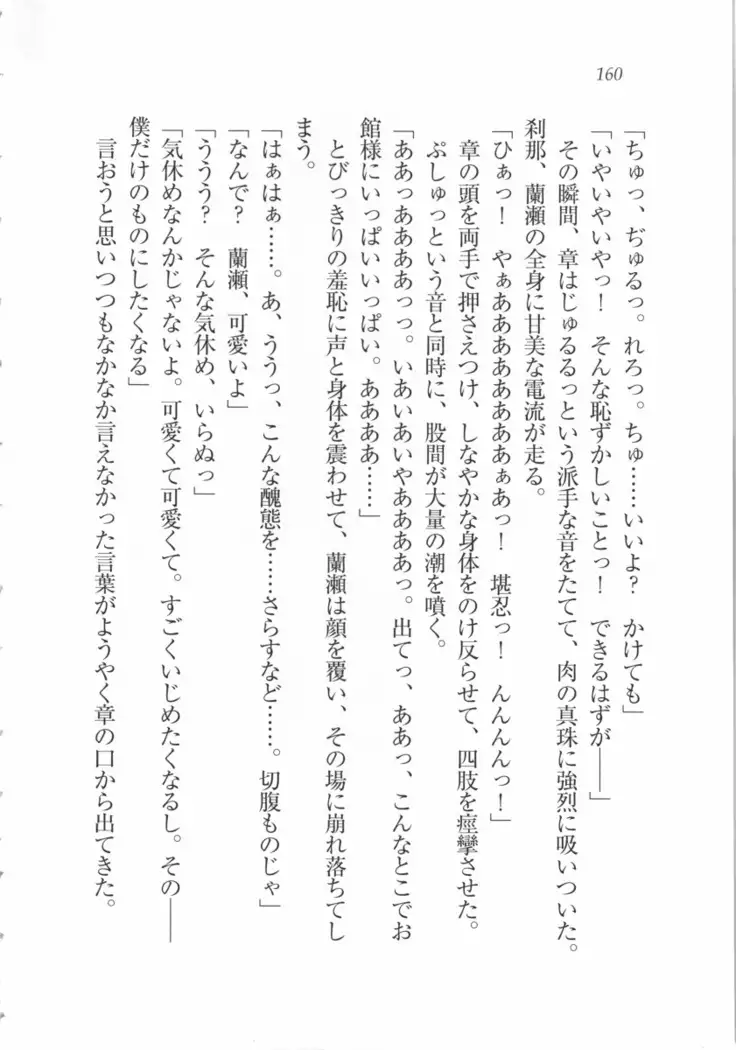 160
「ちゅっ、ぢゅるっ。れろっ。ちゅ……いいよ？　かけても」
「いやいやいやっ！　そんな恥ずかしいことっ！　できるはずが――」
その瞬間、章はじゅるるっという派手な音をたてて、肉の真珠に強烈に吸いついた。
刹那、蘭瀬の全身に甘美な電流が走る。
「ひぁっ！　やぁああああああああぁあっ！　堪忍っ！　んんんんっ！」
章の頭を両手で押さえつけ、しなやかな身体をのけ反らせて、四肢を痙攣させた。
ぷしゅっという音と同時に、股間が大量の潮を噴く。
「ああっああああっっ。いあいあいやああああっ。出てっ、ああっ、こんなとこでお
館様にいっぱいいっぱい。ああああ……」
とびっきりの羞恥に声と身体を震わせて、蘭瀬は顔を覆い、その場に崩れ落ちてし
まう。
「はぁはぁ……。あ、ううっ、こんな醜態を……さらすなど……。切腹ものじゃ」
「なんで？　蘭瀬、可愛いよ」
「ううう？　そんな気休め、いらぬっ」
「気休めなんかじゃないよ。可愛くて可愛くて。すごくいじめたくなるし。その――
僕だけのものにしたくなる」
言おうと思いつつもなかなか言えなかった言葉がようやく章の口から出てきた。